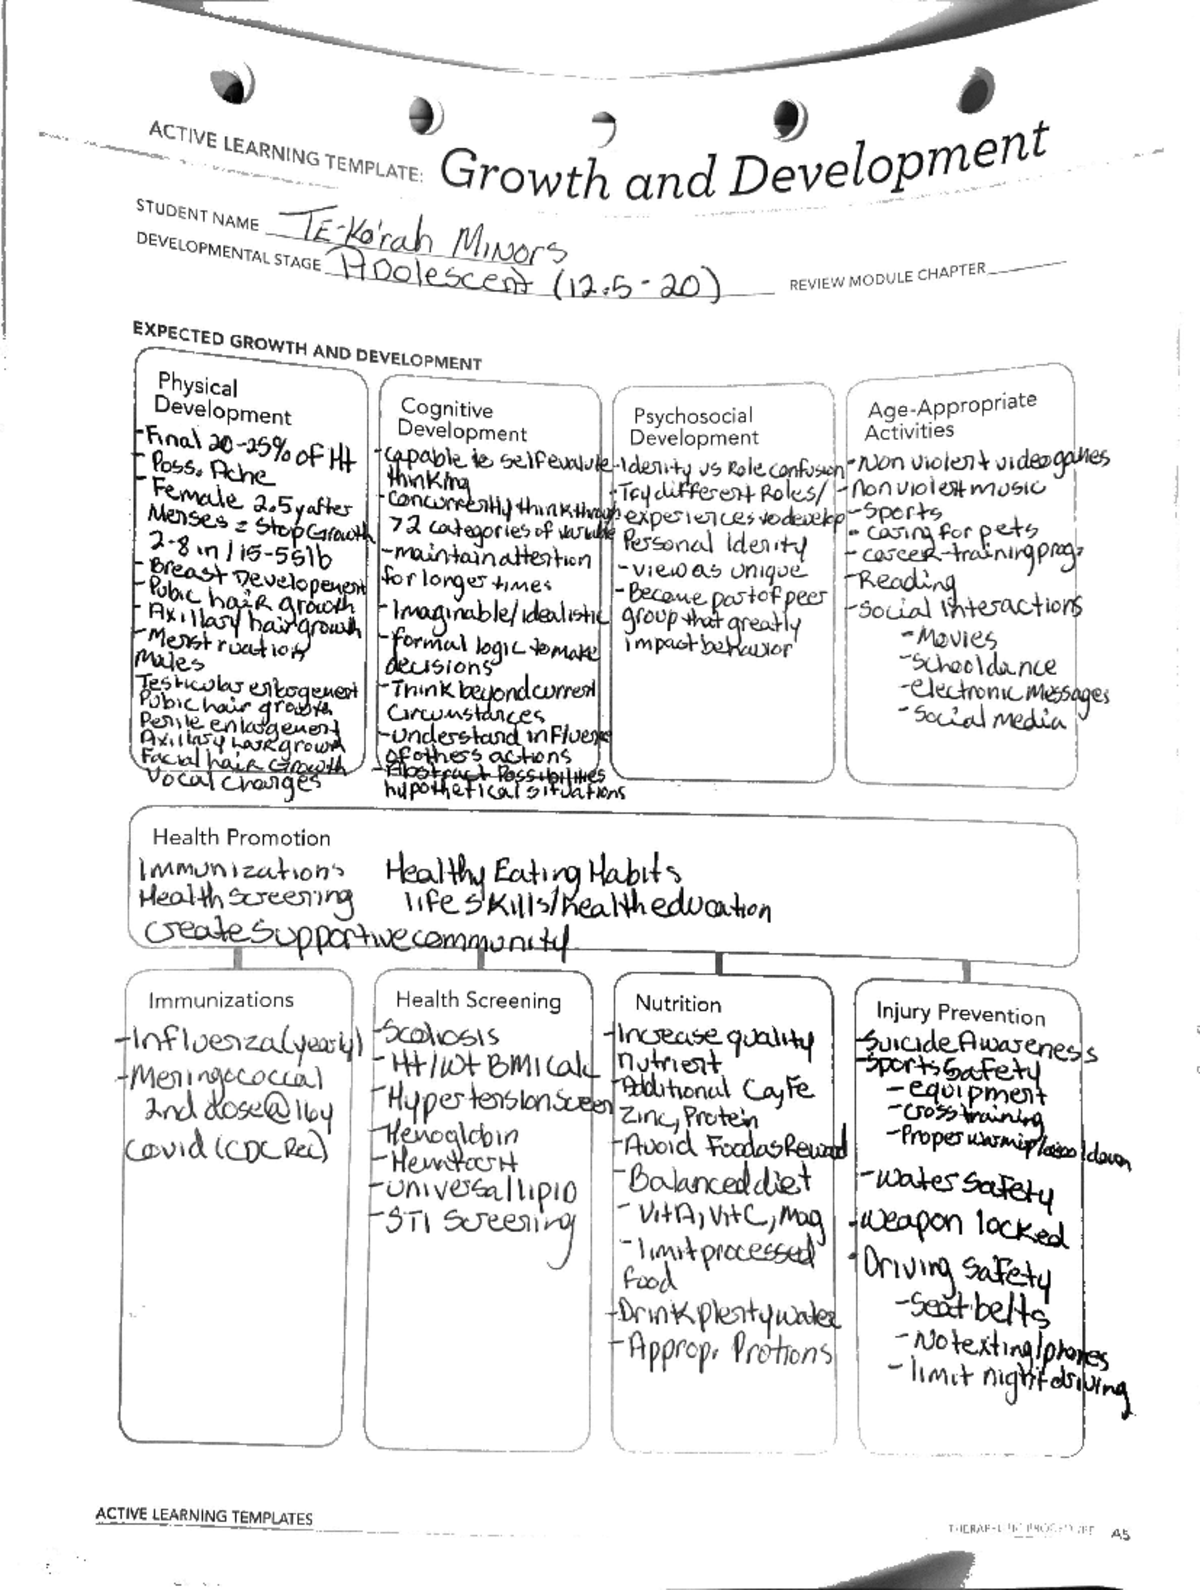 ACTIVE LEARNING TEMPLATE: Growth and Development
STUDENT NAME TE-Ko'rah Minors
DEVELOPMENTAL STAGE Adolescent (12.5-20) REVIEW MODULE CHAPTER
EXPECTED GROWTH AND DEVELOPMENT
Physical
Development
-Final 20-25% of Ht
- Poss. Acne
- Female 2.5y after
Menses = Stop Growth
2-8 in / 15-55lb
- Breast Developement
- Pubic hair growth
- Axillary hair growth
- Menstruation
Males
Testicular enlargement
Pubic hair growth
Penile enlargement
Axillary hair growth
Facial hair Growth
Vocal Changes
Cognitive
Development
-capable to self evalute
thinking
-concurrently think through
>2 categories of variable
-maintain attention
for longer times
-Imaginable/idealistic
-formal logic to make
decisions
-Think beyond current
Circumstances
-understand influence
of others actions
-Abstract Possibilities
hypothetical situations
Psychosocial
Development
-Identity vs Role confusion
-Try different Roles/
experiences to develop
Personal Identity
-view as unique
-Become part of peer
group that greatly
impact behavior
Age-Appropriate
Activities
-Non violent video games
-non violent music
-Sports
- caring for pets
- career-training prog
-Reading
-Social Interactions
-Movies
-School dance
-electronic messages
-Social media
Health Promotion
Immunizations Healthy Eating Habits
Health Screening life skills/health education
create supportive community
Immunizations
-Influenza (yearly)
-Meningococcal
2nd dose @ 16y
Covid (CDC Rec)
Health Screening
-Scoliosis
-Ht/wt BMI Calc
-Hypertension Screen
-Hemoglobin
-Hematocrit
-universal lipid
-STI Screening
Nutrition
-Increase quality
nutrient
-Additional Ca, Fe
Zinc, Protein
-Avoid Food as Reward
-Balanced diet
- Vit A, Vit C, Mag
- limit processed
food
-Drink plenty water
- Approp. Protions
Injury Prevention
-Suicide Awareness
-Sports Safety
- equipment
- cross training
- Proper warmup/cool down
-water safety
-weapon locked
-Driving Safety
-Seat belts
-No texting/phones
- limit night driving
ACTIVE LEARNING TEMPLATES
THERAPEUTIC PROCEDURE A5